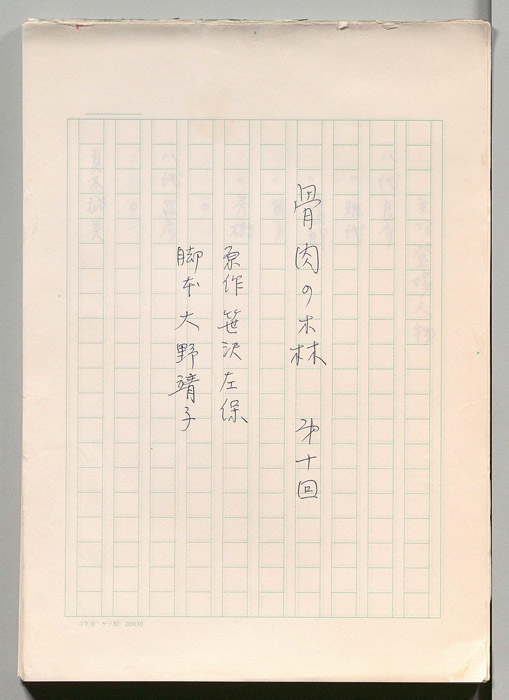 骨肉の森　第十回
原作 笹沢左保
脚本 大野靖子
コクヨ ケ-30 20X10